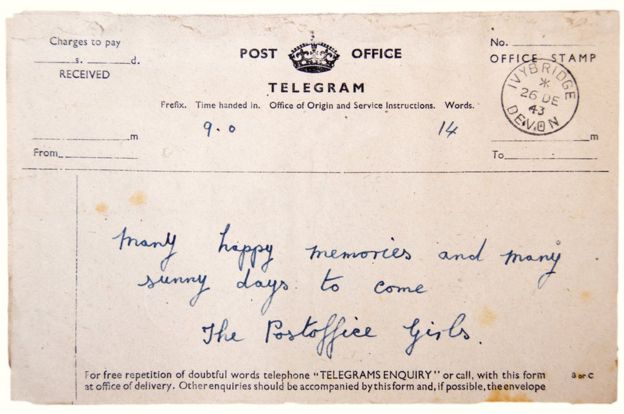 Charges to pay
s. d.
RECEIVED
POST OFFICE
TELEGRAM
No.
OFFICE STAMP
IVYBRIDGE
*
26 DE
43
DEVON
Prefix. Time handed in. Office of Origin and Service Instructions. Words.
9.0 14
m
From
m
To
Many happy memories and many
sunny days to come
The Postoffice Girls.
For free repetition of doubtful words telephone "TELEGRAMS ENQUIRY" or call, with this form
at office of delivery. Other enquiries should be accompanied by this form and, if possible, the envelope
B or C